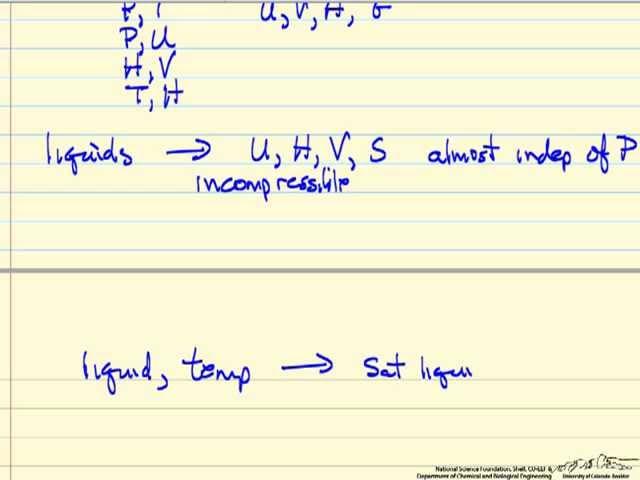 P, T U, V, H, G
P, U
H, V
T, H
liquids → U, H, V, S almost indep of P
incompressible
liquid, temp → sat liqui
National Science Foundation, Shell, CU-LEF &
Department of Chemical and Biological Engineering University of Colorado Boulder